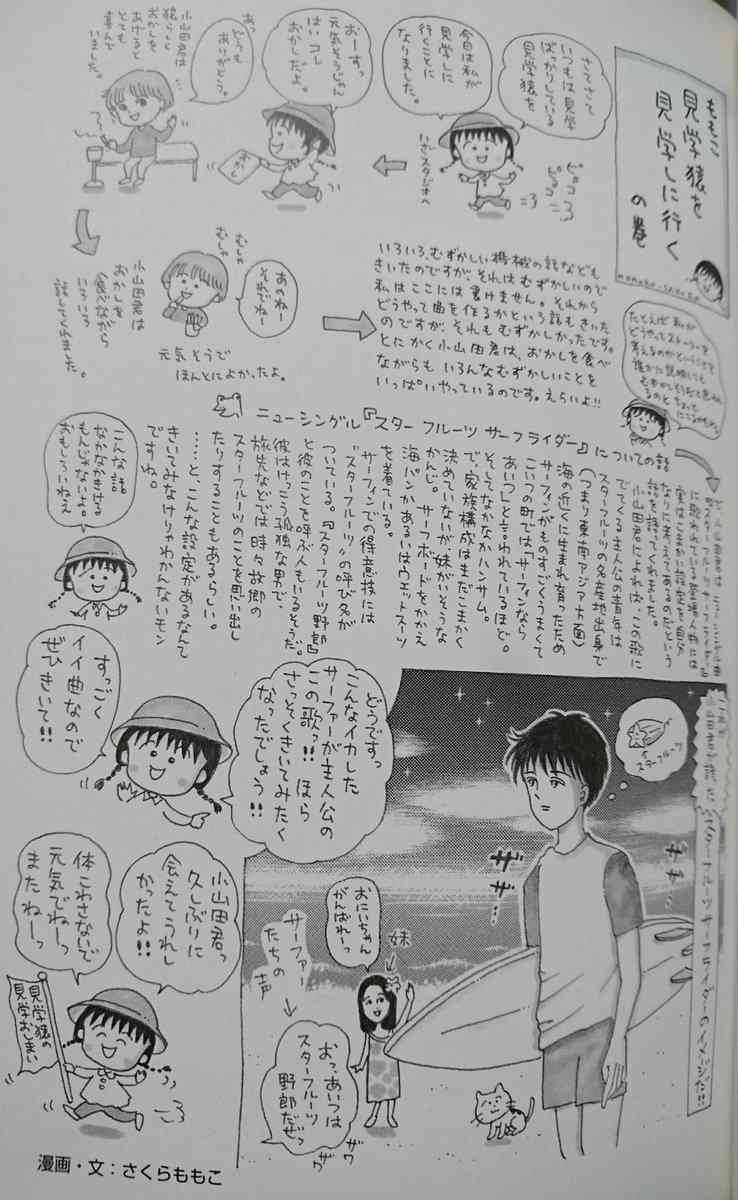 ももこ
見学猿を
見学しに行く
の巻
MOMOKO SAKURA
さてさて
いつもは見学
ばっかりしている
見学猿を
今日は私が
見学しに
行くことに
なりました。
ピョコ
ピョコ
いざスタジオへ
おーすっ
元気そうじゃん
はいコレ
おかしだよ。
おかし
あっ
どうも
ありがとう。
小山田君は
猿らしく
おかしを
あげると
とても
喜んで
いました。
小山田君は
おかしを
食べながら
いろいろ
話してくれました。
むしゃ
むしゃ
あのねー
それでねー
元気そうで
ほんとによかったよ。
いろいろ、むずかしい機械の話なども
きいたのですが、それはむずかしいので
私はここには書けません。それから
どうやって曲を作るかという話もきいた
のですが、それもむずかしかったです。
とにかく小山田君は、おかしを食べ
ながらも いろんなむずかしいことを
いっぱいやっているのです。えらいよ!!
たとえば 私が
どうやってストーリーを
考えるのかということを
誰かに説明しても
むずかしそうだと思われ
るのと ちょっと
にてるかもね。
ニューシングル『スター フルーツ サーフライダー』についての話
に歌われている登場人物には
実はこまかい設定を自分
なりに考えてあるのだという
話を語ってくれました。
小山田君によれば、この歌に
でてくる主人公の青年は
スターフルーツの名産地出身で
(つまり東南アジア方面)
海の近くに生まれ育ったため
サーフィンがものすごくうまくて
こいつの町では「サーフィンなら
あいつ」と言われているほど。
そしてなかなかハンサム。
で、家族構成はまだこまかく
決めていないが、妹がいそうな
かんじ。サーフボードをかかえ
海パンかあるいはウェットスーツ
を着ている。
サーフィンでの得意技には
"スターフルーツ"の呼び名が
ついている。『スターフルーツ野郎』
と彼のことを呼ぶ人もいるそうだ。
彼はけっこう孤独な男で、
旅先などでは時々故郷の
スターフルーツのことを思い出し
たりすることもあるらしい。
……と、こんな設定があるなんて
きいてみなけりゃわかんないモン
ですね。
こんな話
なかなかきける
もんじゃないよ。
おもしろいねえ
どうですっ
こんなイカした
サーファーが主人公の
この歌っ!! ほら
さっそくきいてみたく
なったでしょう!!
すっごく
イイ曲なので
ぜひきいて!!
スターフルーツサーフライダーのイメージだ!!
スターフルーツ
ザザ…
ザザ…
おにいちゃん
がんばれーっ
妹
サーファー
たちの声
おっ、あいつは
スターフルーツ
野郎だぜっ
ザワ
ザワ
小山田君っ
久しぶりに
会えてうれし
かったよ!!
体こわさないで
元気でねーっ
またねーっ
見学猿の
見学おしまい
漫画・文:さくらももこ